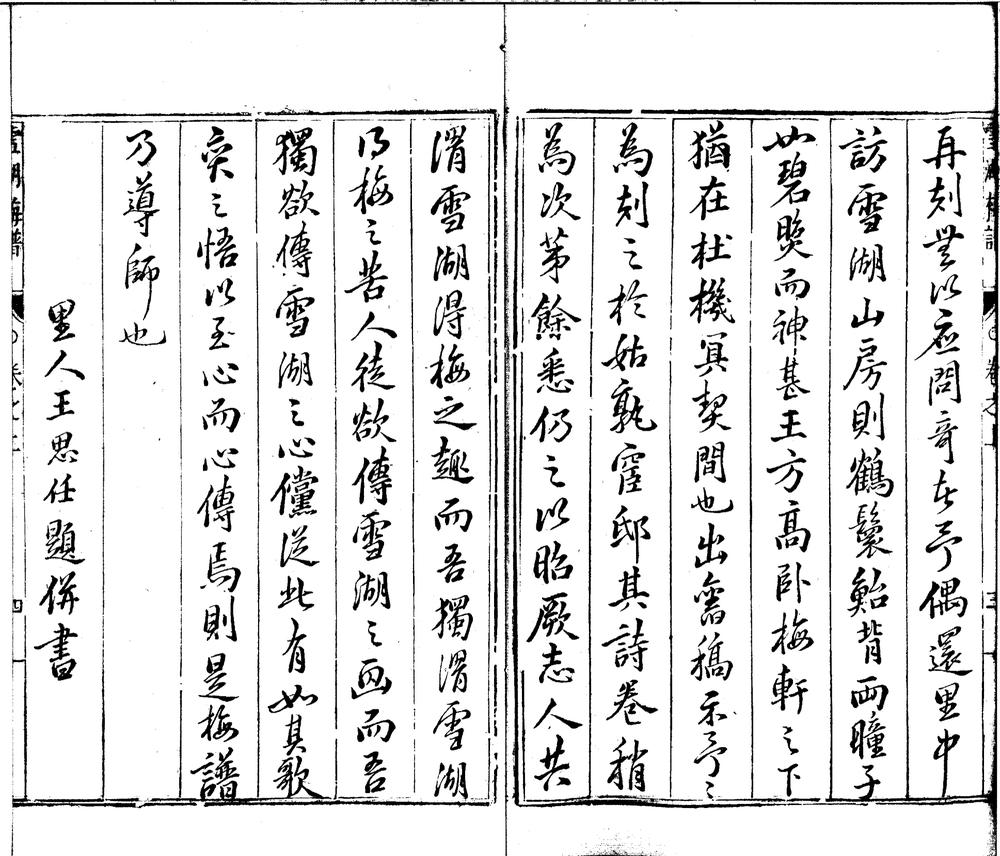 再刻無以應問奇者予偶還里中
訪雪湖山房則鶴鬢鮐背兩瞳子
如碧燄而神甚王方高臥梅軒之下
猶在杜機冥契間也出舊稿示予〻
為刻之於姑孰宦邸其詩卷稍
為次第餘悉仍之以昭厥志人共
謂雪湖得梅之趣而吾獨謂雪湖
得梅之苦人徒欲傳雪湖之画而吾
獨欲傳雪湖之心儻從此有如其歌
奕之悟以至心而心傳焉則是梅譜
乃導師也
里人王思任題併書
雪湖梅譜
卷之上
四